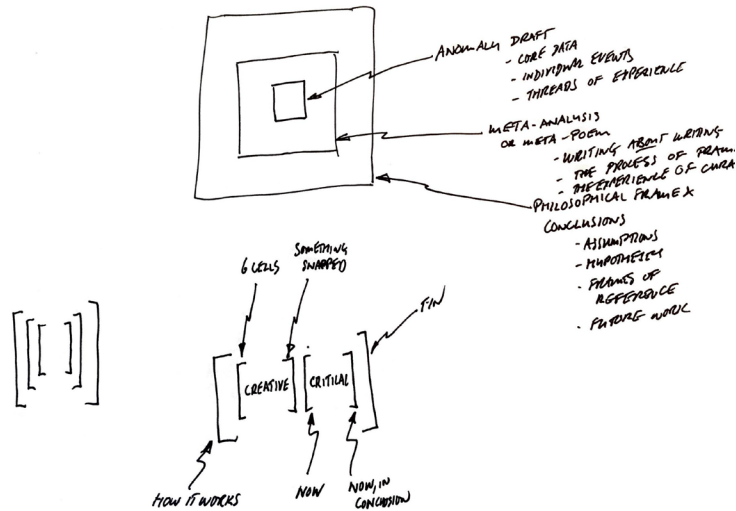 ANOMALY DRAFT
- CORE DATA
- INDIVIDUAL EVENTS
- THREADS OF EXPERIENCE
META-ANALYSIS
OR META-POEM
- WRITING ABOUT WRITING
- THE PROCESS OF
- THE EXPERIENCE OF
PHILOSOPHICAL FRAME X
CONCLUSIONS
- ASSUMPTIONS
- HYPOTHESES
- FRAMES OF
REFERENCE
- FUTURE WORK
6 CELLS
SOMETHING
SNAPPED
FIN
CREATIVE
CRITICAL
HOW IT WORKS
NOW
NOW, IN
CONCLUSION